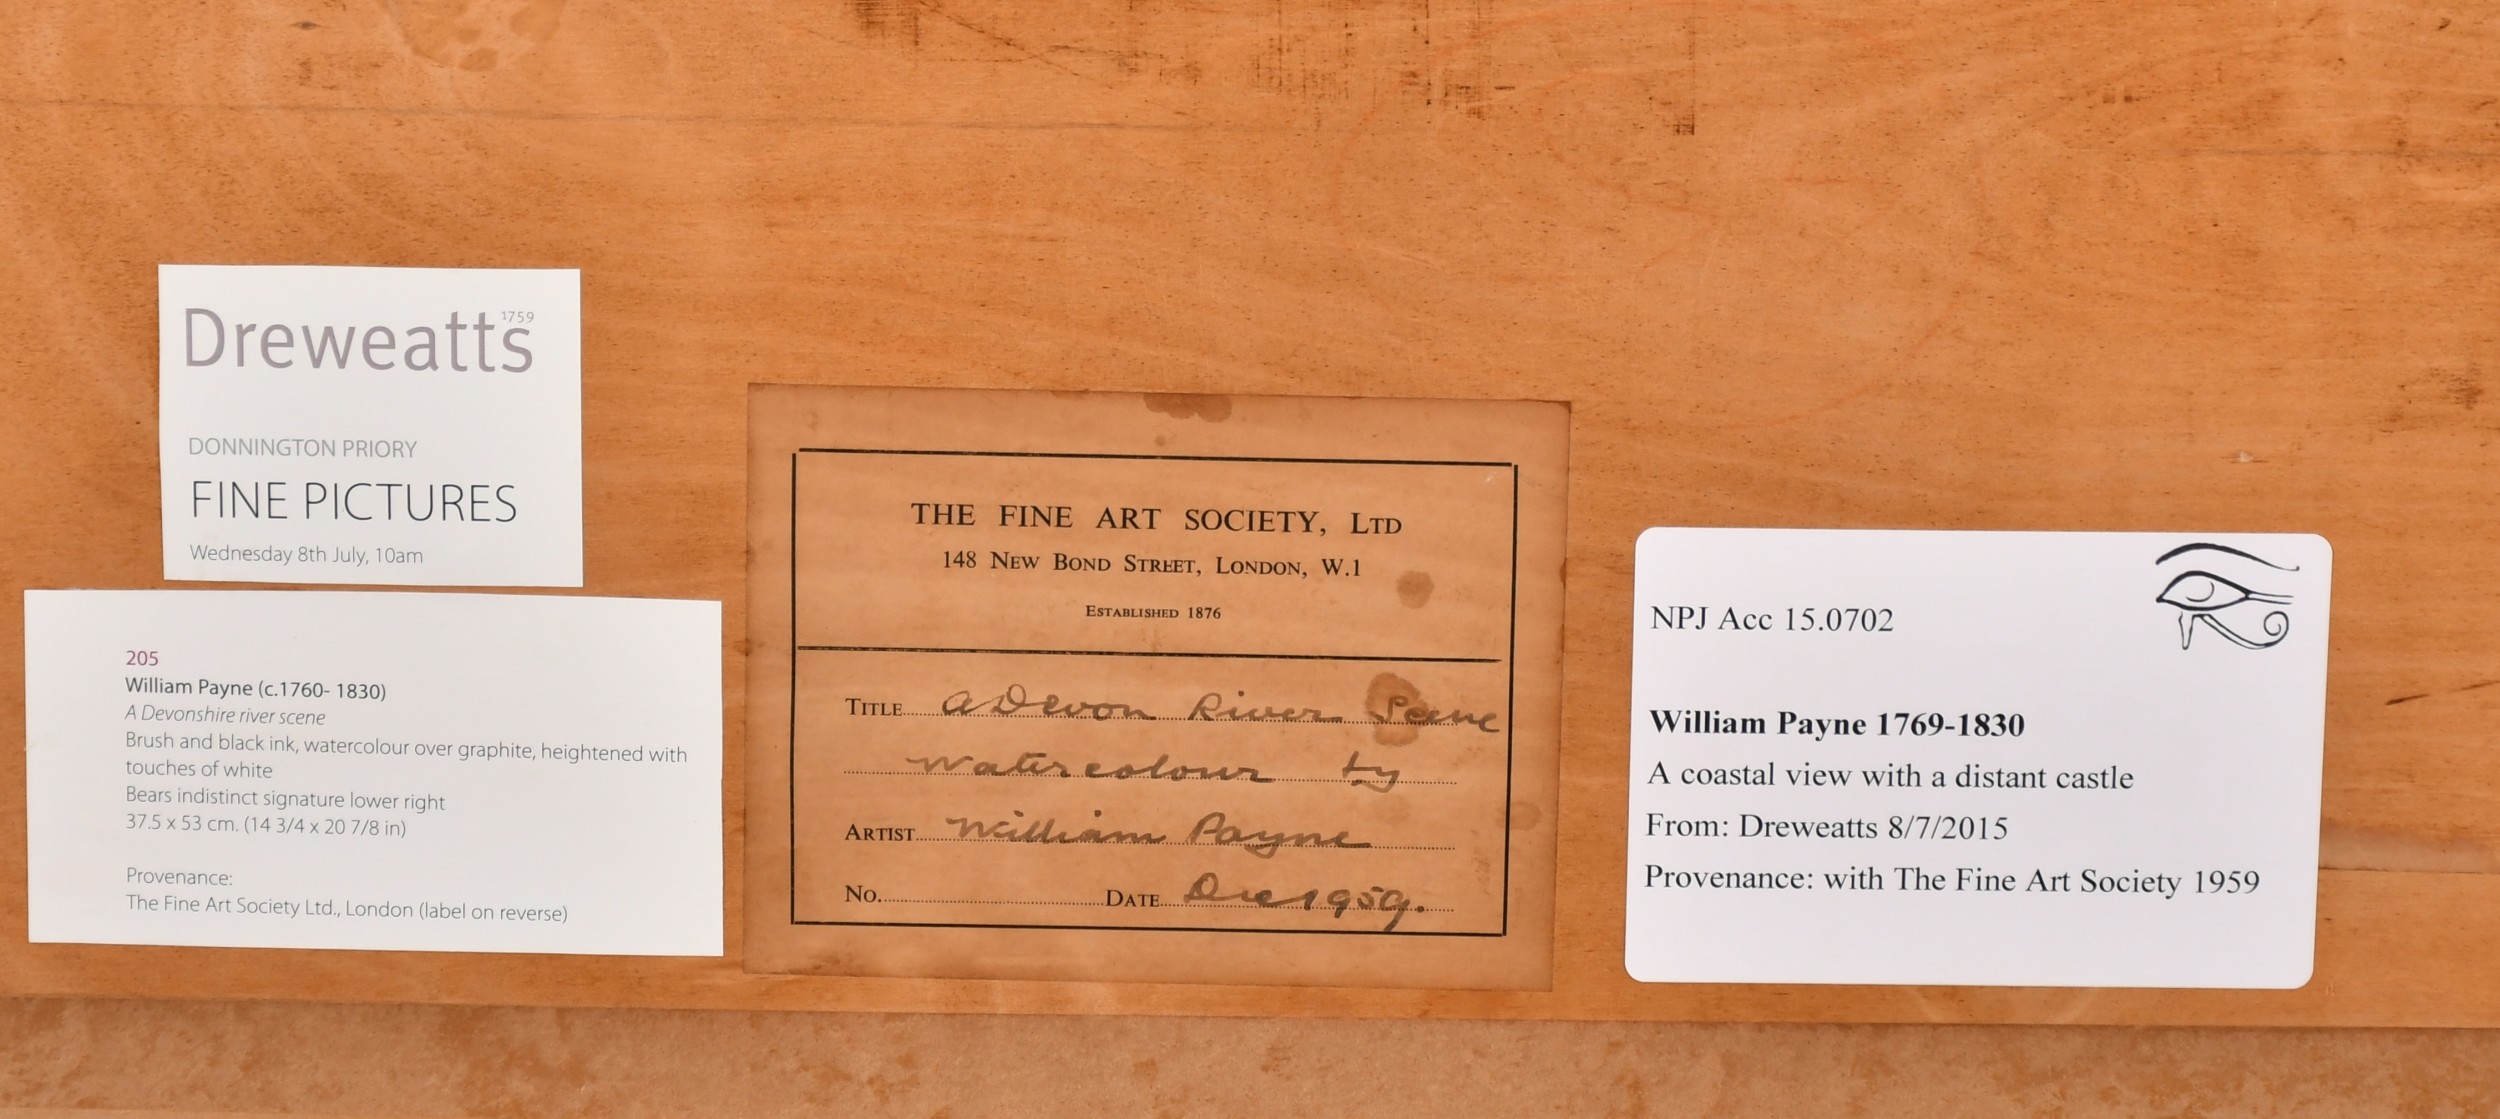 Dreweatts 1759
DONNINGTON PRIORY
FINE PICTURES
Wednesday 8th July, 10am
205
William Payne (c.1760- 1830)
A Devonshire river scene
Brush and black ink, watercolour over graphite, heightened with
touches of white
Bears indistinct signature lower right
37.5 x 53 cm. (14 3/4 x 20 7/8 in)
Provenance:
The Fine Art Society Ltd., London (label on reverse)
THE FINE ART SOCIETY, LTD
148 NEW BOND STREET, LONDON, W.1
ESTABLISHED 1876
TITLE A Devon River Scene
Watercolour by
ARTIST William Payne
NO. DATE Dec 1959.
NPJ Acc 15.0702
William Payne 1769-1830
A coastal view with a distant castle
From: Dreweatts 8/7/2015
Provenance: with The Fine Art Society 1959